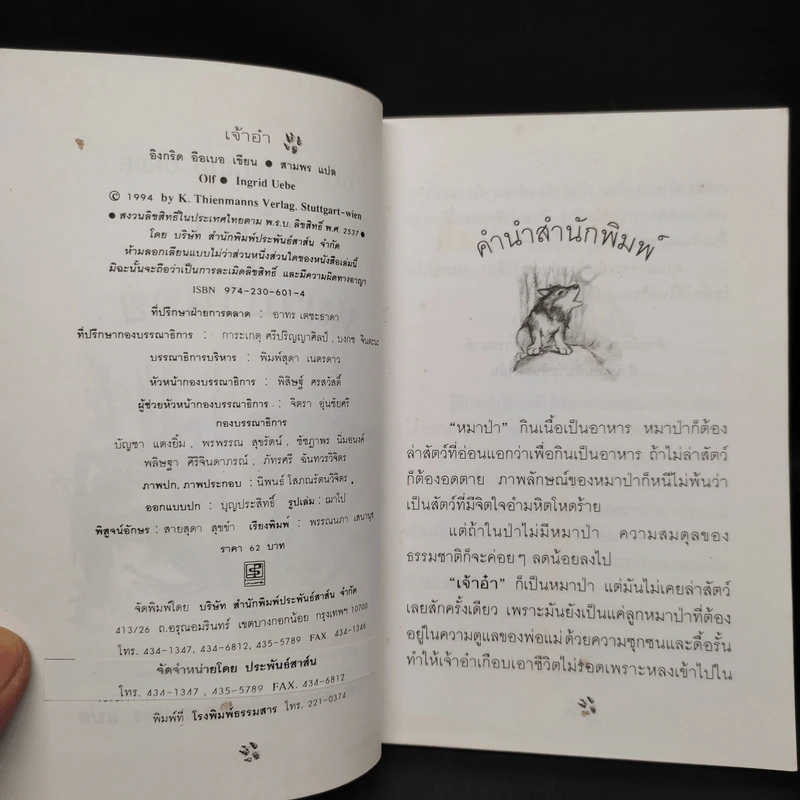 เจ้าอ๋ำ
อิงกริด อือเบอ เขียน • สามพร แปล
Olf • Ingrid Uebe
© 1994 by K. Thienmanns Verlag, Stuttgart-wien
• สงวนลิขสิทธิ์ในประเทศไทยตาม พ.ร.บ. ลิขสิทธิ์ พ.ศ. 2537 •
โดย บริษัท สำนักพิมพ์ประพันธ์สาส์น จำกัด
ห้ามลอกเลียนแบบไม่ว่าส่วนหนึ่งส่วนใดของหนังสือเล่มนี้
มิฉะนั้นจะถือว่าเป็นการละเมิดลิขสิทธิ์ และมีความผิดทางอาญา
ISBN 974-230-601-4
ที่ปรึกษาฝ่ายการตลาด : อาทร เตชะธาดา
ที่ปรึกษากองบรรณาธิการ : การะเกตุ ศรีปริญญาศิลป์, บงกช จินตะนะ
บรรณาธิการบริหาร : พิมพ์สุดา เนตรดาว
หัวหน้ากองบรรณาธิการ : พิสิษฐ์ ศรสวัสดิ์
ผู้ช่วยหัวหน้ากองบรรณาธิการ : จิตรา อุ่นชัยศรี
กองบรรณาธิการ
บัญชา แตงยิ้ม, พรพรรณ สุขรัตน์, ชัชฎาพร นิ่มอนงค์
พลิษฐา ศิริจินดาภรณ์, ภัทรศรี ฉันทวรวิจิตร
ภาพปก, ภาพประกอบ : นิพนธ์ โสภณรัตนวิจิตร
ออกแบบปก : บุญประสิทธิ์ รูปเล่ม : ฌาโป
พิสูจน์อักษร : สายสุดา สุขขำ เรียงพิมพ์ : พรรณนภา เสนานุช
ราคา 62 บาท
จัดพิมพ์โดย บริษัท สำนักพิมพ์ประพันธ์สาส์น จำกัด
413/26 ถ.อรุณอมรินทร์ เขตบางกอกน้อย กรุงเทพฯ 10700
โทร. 434-1347, 434-6812, 435-5789 FAX 434-1346
จัดจำหน่ายโดย ประพันธ์สาส์น
โทร. 434-1347 , 435-5789 FAX. 434-6812
พิมพ์ที่ โรงพิมพ์ธรรมสาร โทร. 221-0374
คำนำสำนักพิมพ์
“หมาป่า” กินเนื้อเป็นอาหาร หมาป่าก็ต้อง
ล่าสัตว์ที่อ่อนแอกว่าเพื่อกินเป็นอาหาร ถ้าไม่ล่าสัตว์
ก็ต้องอดตาย ภาพลักษณ์ของหมาป่าก็หนีไม่พ้นว่า
เป็นสัตว์ที่มีจิตใจอำมหิตโหดร้าย
แต่ถ้าในป่าไม่มีหมาป่า ความสมดุลของ
ธรรมชาติก็จะค่อยๆ ลดน้อยลงไป
“เจ้าอ๋ำ” ก็เป็นหมาป่า แต่มันไม่เคยล่าสัตว์
เลยสักครั้งเดียว เพราะมันยังเป็นแค่ลูกหมาป่าที่ต้อง
อยู่ในความดูแลของพ่อแม่ด้วยความซุกซนและดื้อรั้น
ทำให้เจ้าอ๋ำเกือบเอาชีวิตไม่รอดเพราะหลงเข้าไปใน